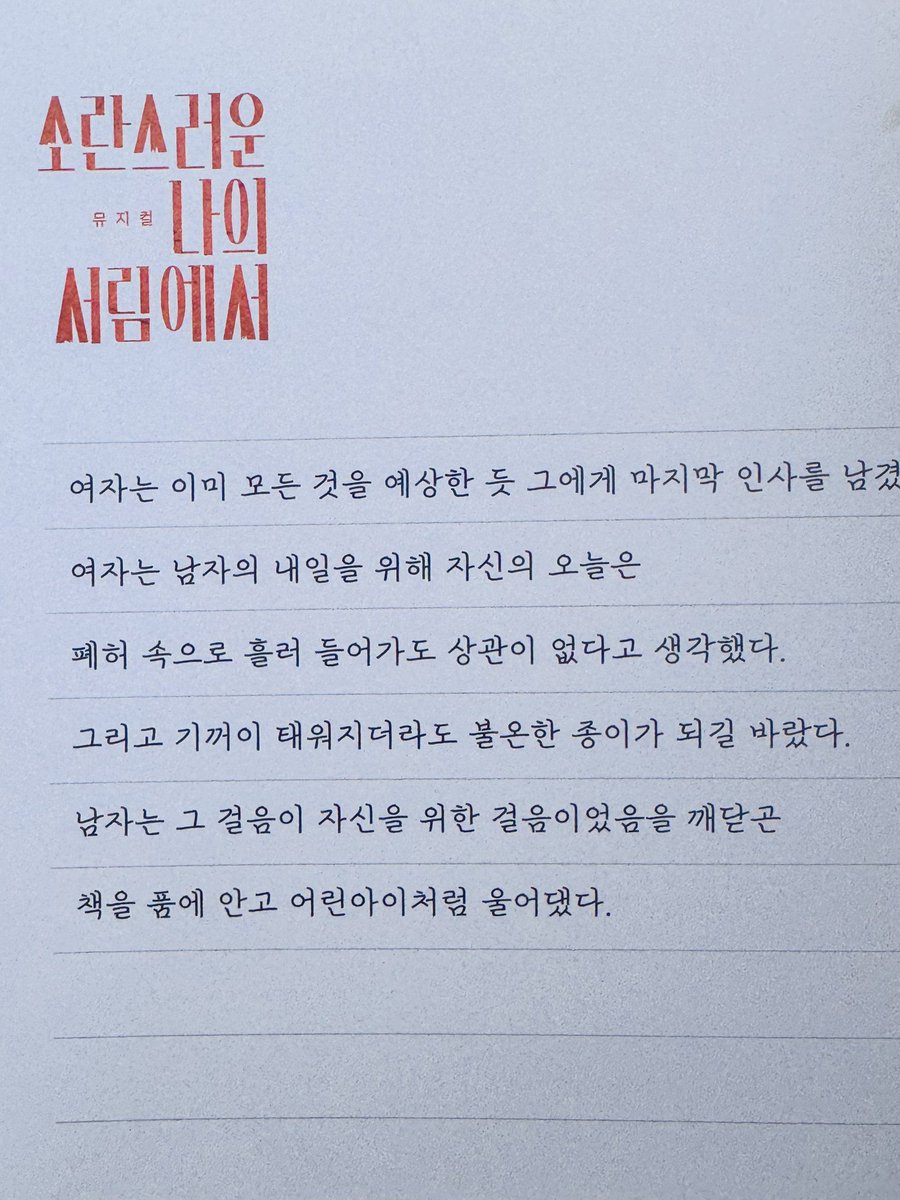 소란스러운
뮤지컬 나의
서림에서
여자는 이미 모든 것을 예상한 듯 그에게 마지막 인사를 남겼
여자는 남자의 내일을 위해 자신의 오늘은
폐허 속으로 흘러 들어가도 상관이 없다고 생각했다.
그리고 기꺼이 태워지더라도 불온한 종이가 되길 바랐다.
남자는 그 걸음이 자신을 위한 걸음이었음을 깨닫곤
책을 품에 안고 어린아이처럼 울어댔다.